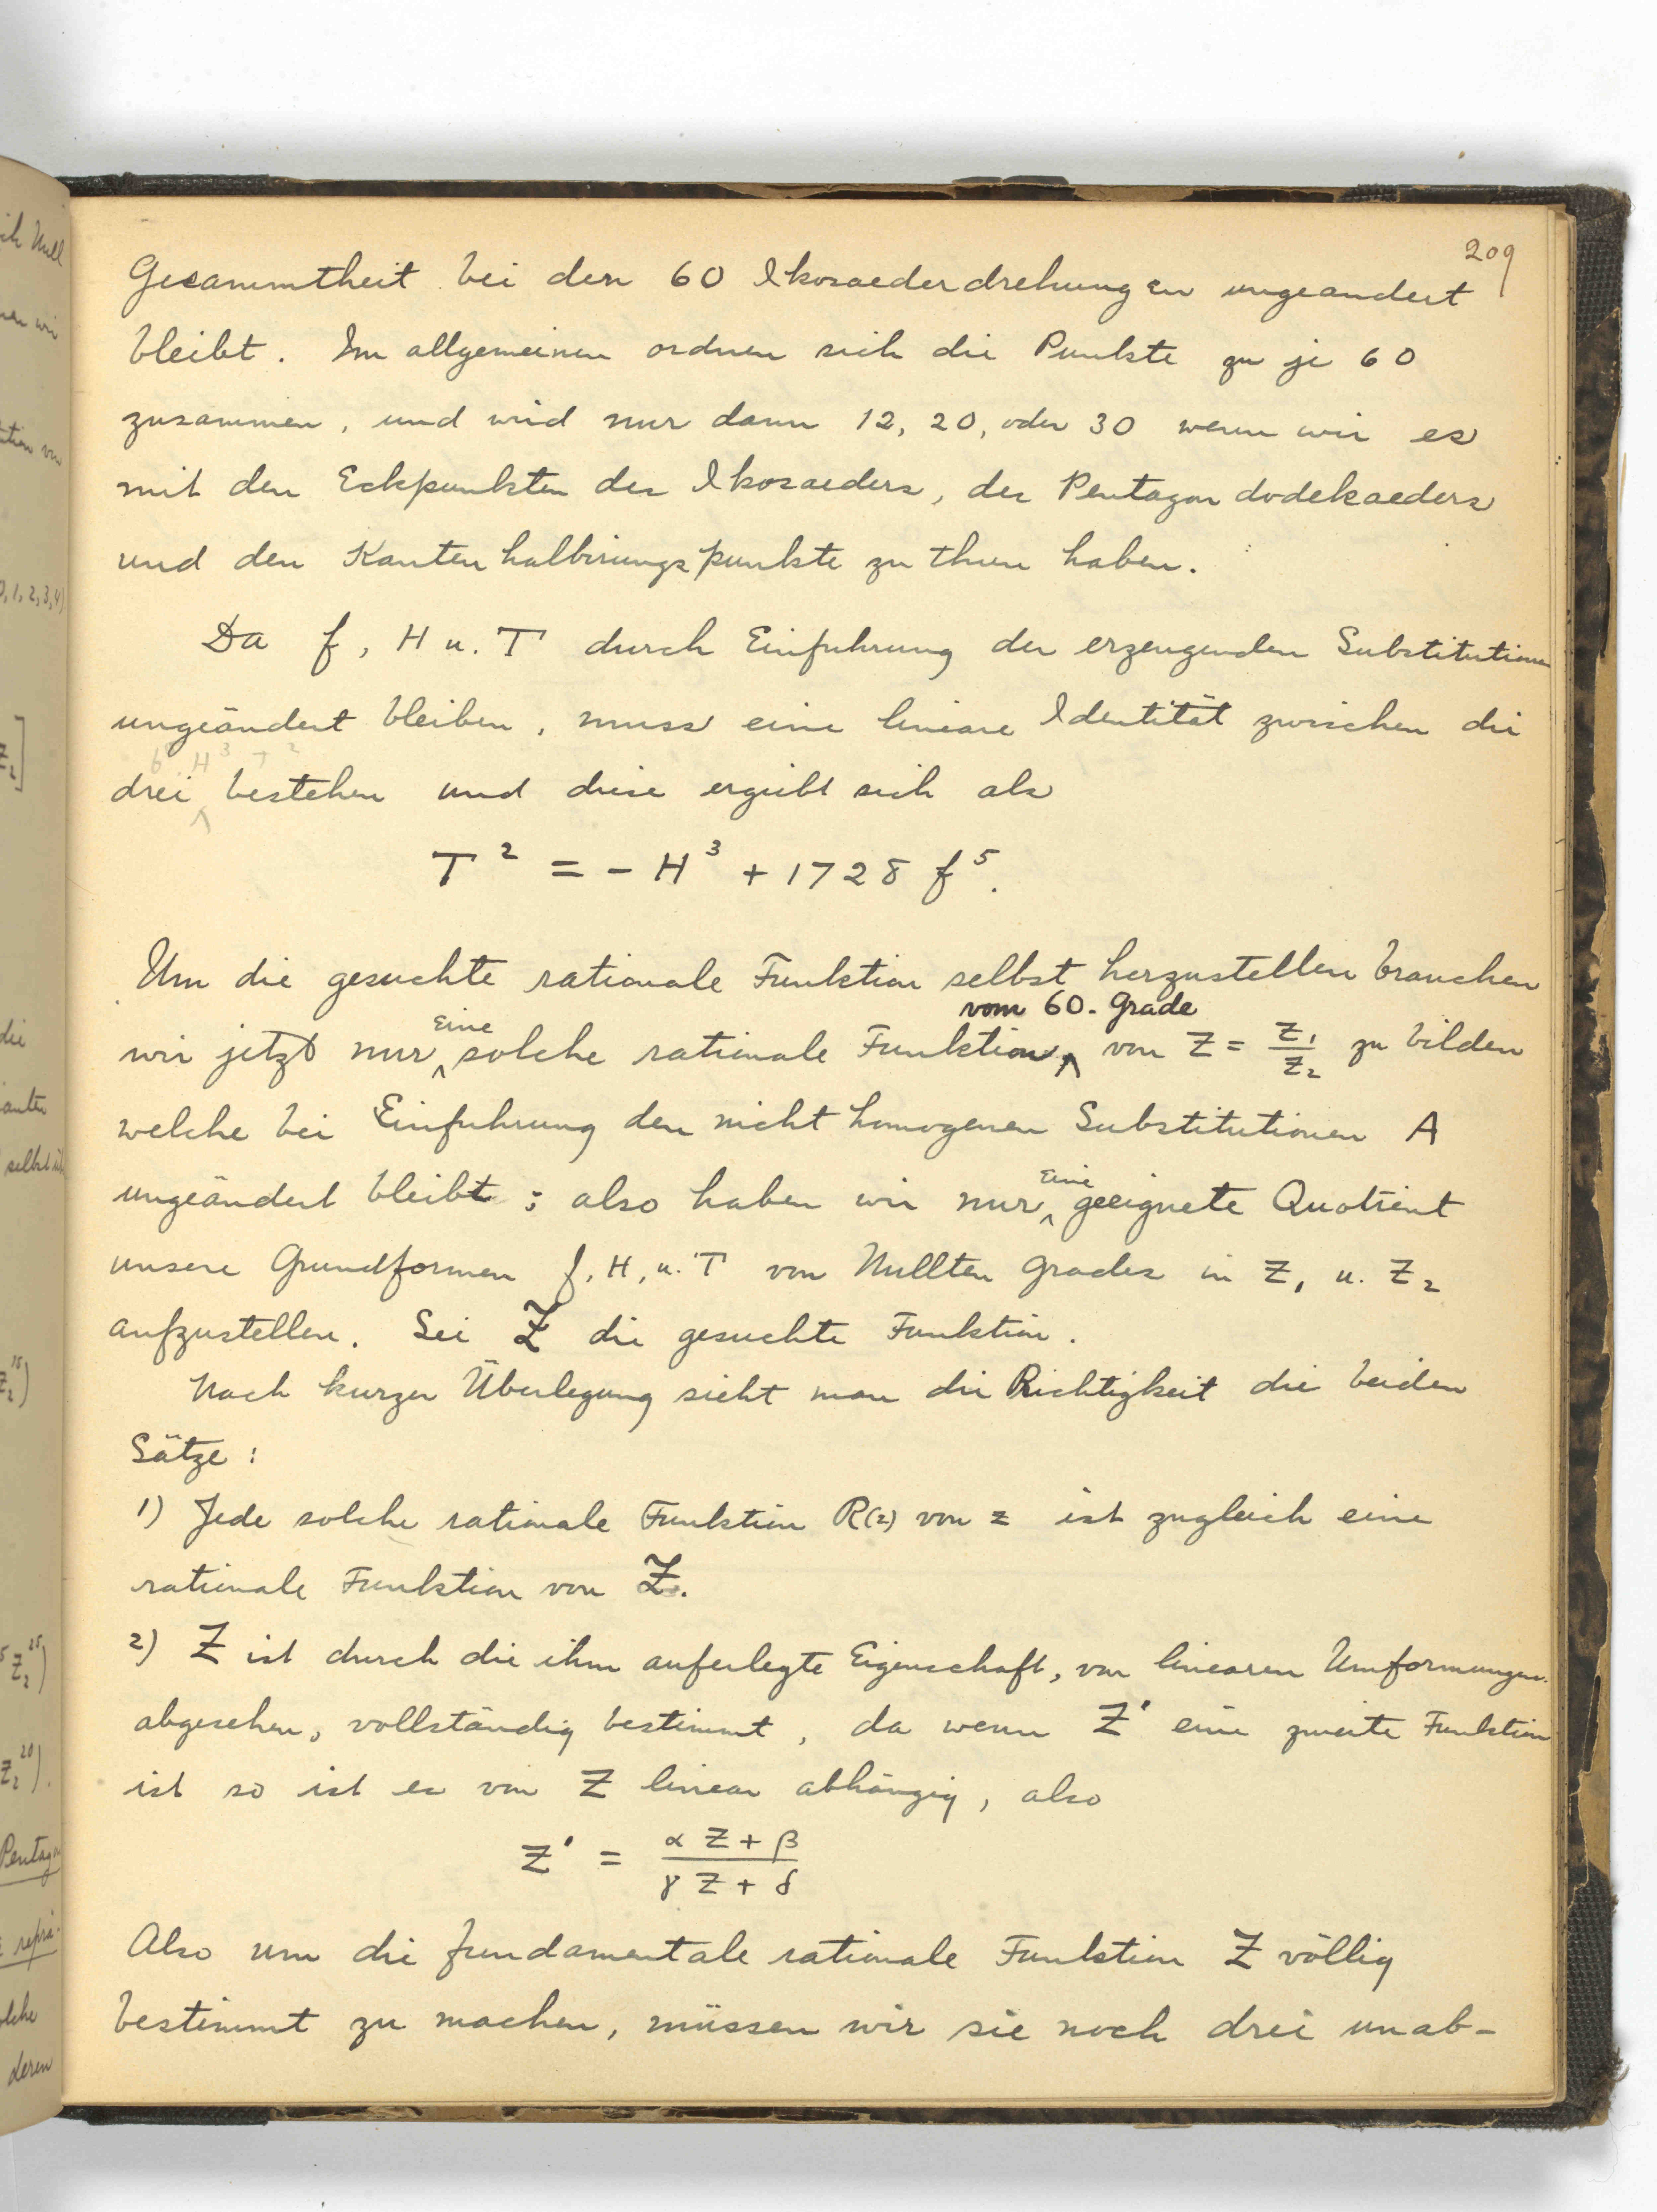 209
Gesammtheit bei den 60 Ikosaederdrehungen ungeandert
bleibt. Im allgemeinen ordnen sich die Punkte zu je 60
zusammen, und wird nur dann 12, 20, oder 30 wenn wir es
mit den Eckpunkten des Ikosaeders, des Pentagon dodekaeders
und den Kantenhalbirungspunkte zu thun haben.
Da f, H u. T durch Einfuhrung der erzeugenden Substitutionen
ungeändert bleiben, muss eine lineare Identität zwischen die
H³ T²
drei bestehen und diese ergibt sich als
T² = - H³ + 1728 f⁵.
Um die gesuchte rationale Funktion selbst herzustellen brauchen
vom 60. Grade
wir jetzt nur eine solche rationale Funktion von Z = Z₁/Z₂ zu bilden
welche bei Einfuhrung den nicht homogenen Substitutionen A
ungeändert bleibt ; also haben wir nur eine geeignete Quotient
unsere Grundformen f, H, u. T von Nullten Grades in Z₁ u. Z₂
aufzustellen. Sei Z die gesuchte Funktion.
Nach kurzer Überlegung sieht man die Richtigkeit die beiden
Sätze :
1) Jede solche rationale Funktion R(z) von z ist zugleich eine
rationale Funktion von Z.
2) Z ist durch die ihm auferlegte Eigenschaft, von linearen Umformungen
abgesehen, vollständig bestimmt, da wenn Z' eine zweite Funktion
ist so ist es von Z linear abhängig, also
Z' = (α Z + β)/(γ Z + δ)
Also um die fundamentale rationale Funktion Z völlig
bestimmt zu machen, müssen wir sie noch drei unab-